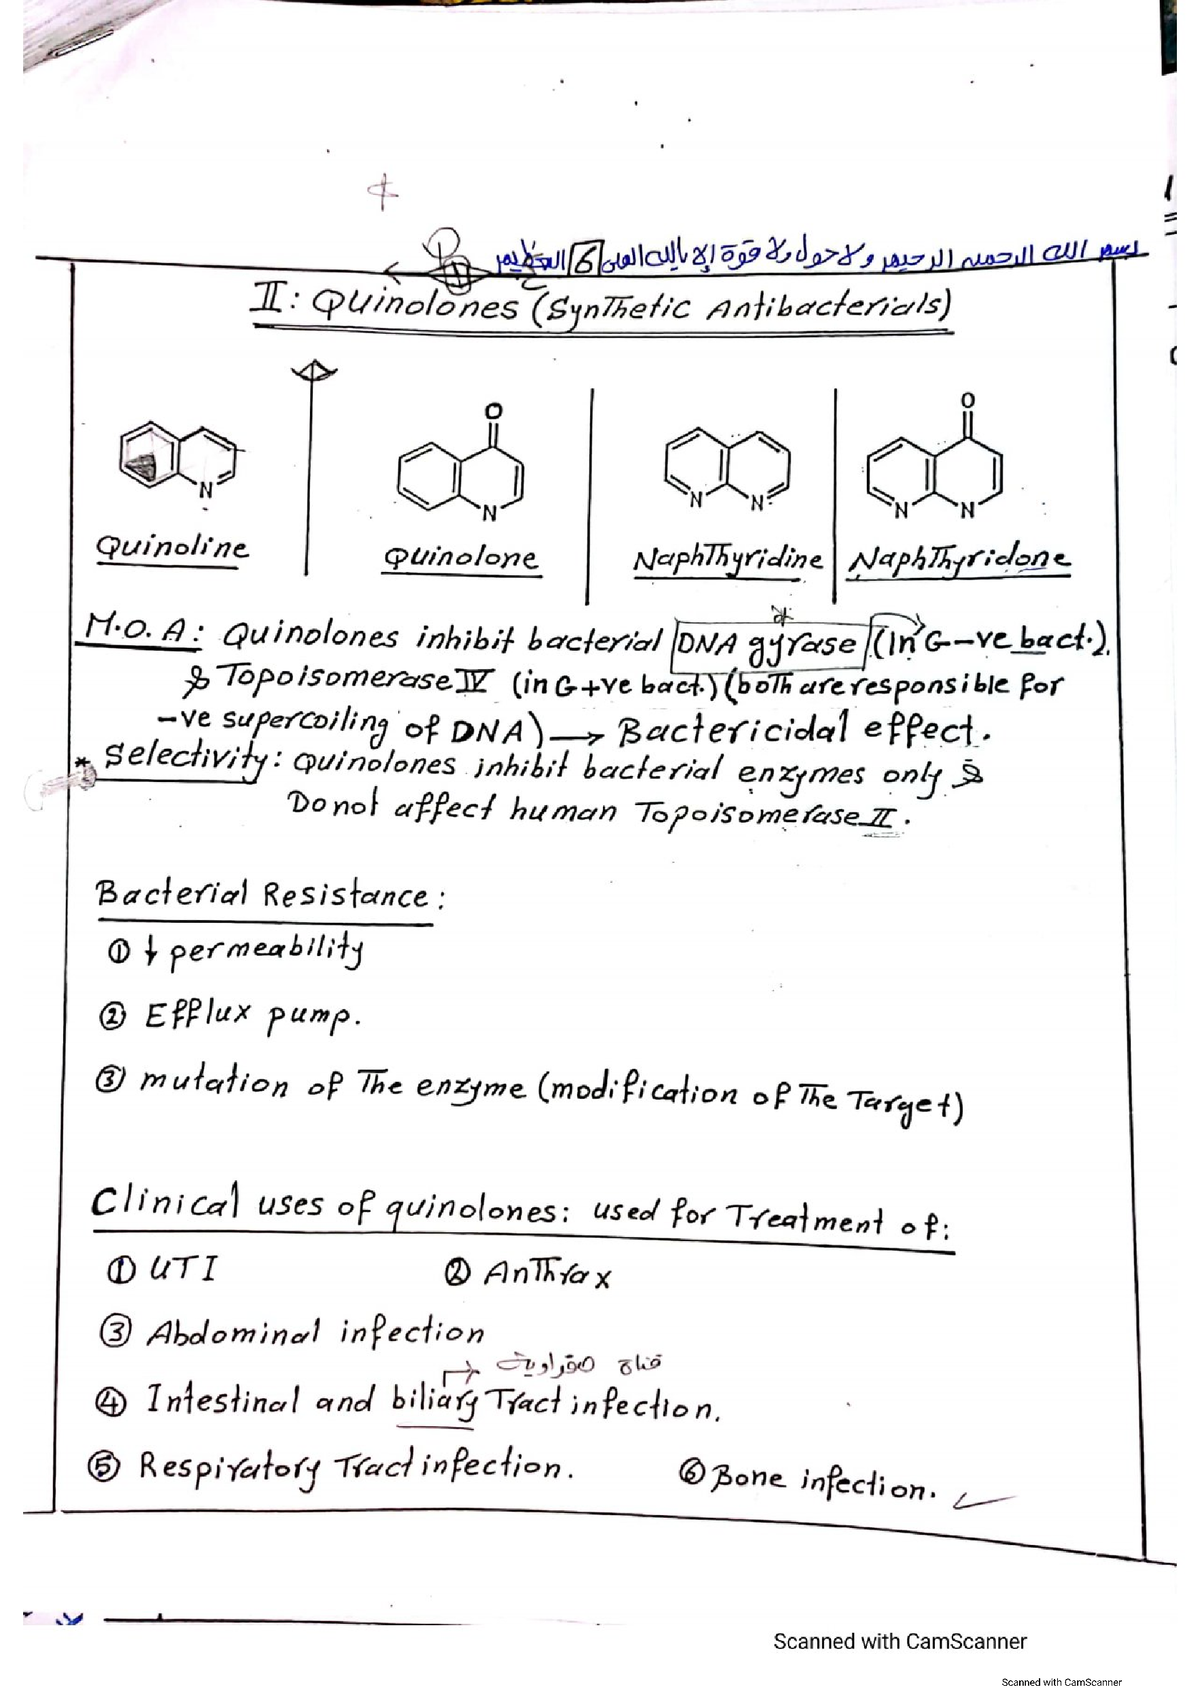 بسم الله الرحمن الرحيم ولا حول ولا قوة إلا بالله العلى 6 العظيم
II: Quinolones (Synthetic Antibacterials)
O O
N N N N N N
Quinoline Quinolone Naphthyridine Naphthyridone
M.O.A: Quinolones inhibit bacterial DNA gyrase (in G-ve bact.).
& Topoisomerase IV (in G+ve bact.) (both are responsible for
-ve supercoiling of DNA) → Bactericidal effect.
* Selectivity: Quinolones inhibit bacterial enzymes only &
Do not affect human Topoisomerase II.
Bacterial Resistance:
① ↓ permeability
② Efflux pump.
③ mutation of The enzyme (modification of The Target)
Clinical uses of quinolones: used for Treatment of:
① UTI ② Anthrax
③ Abdominal infection
قناة صفراوية
④ Intestinal and biliary Tract infection.
⑤ Respiratory Tract infection. ⑥ Bone infection.
Scanned with CamScanner
Scanned with CamScanner